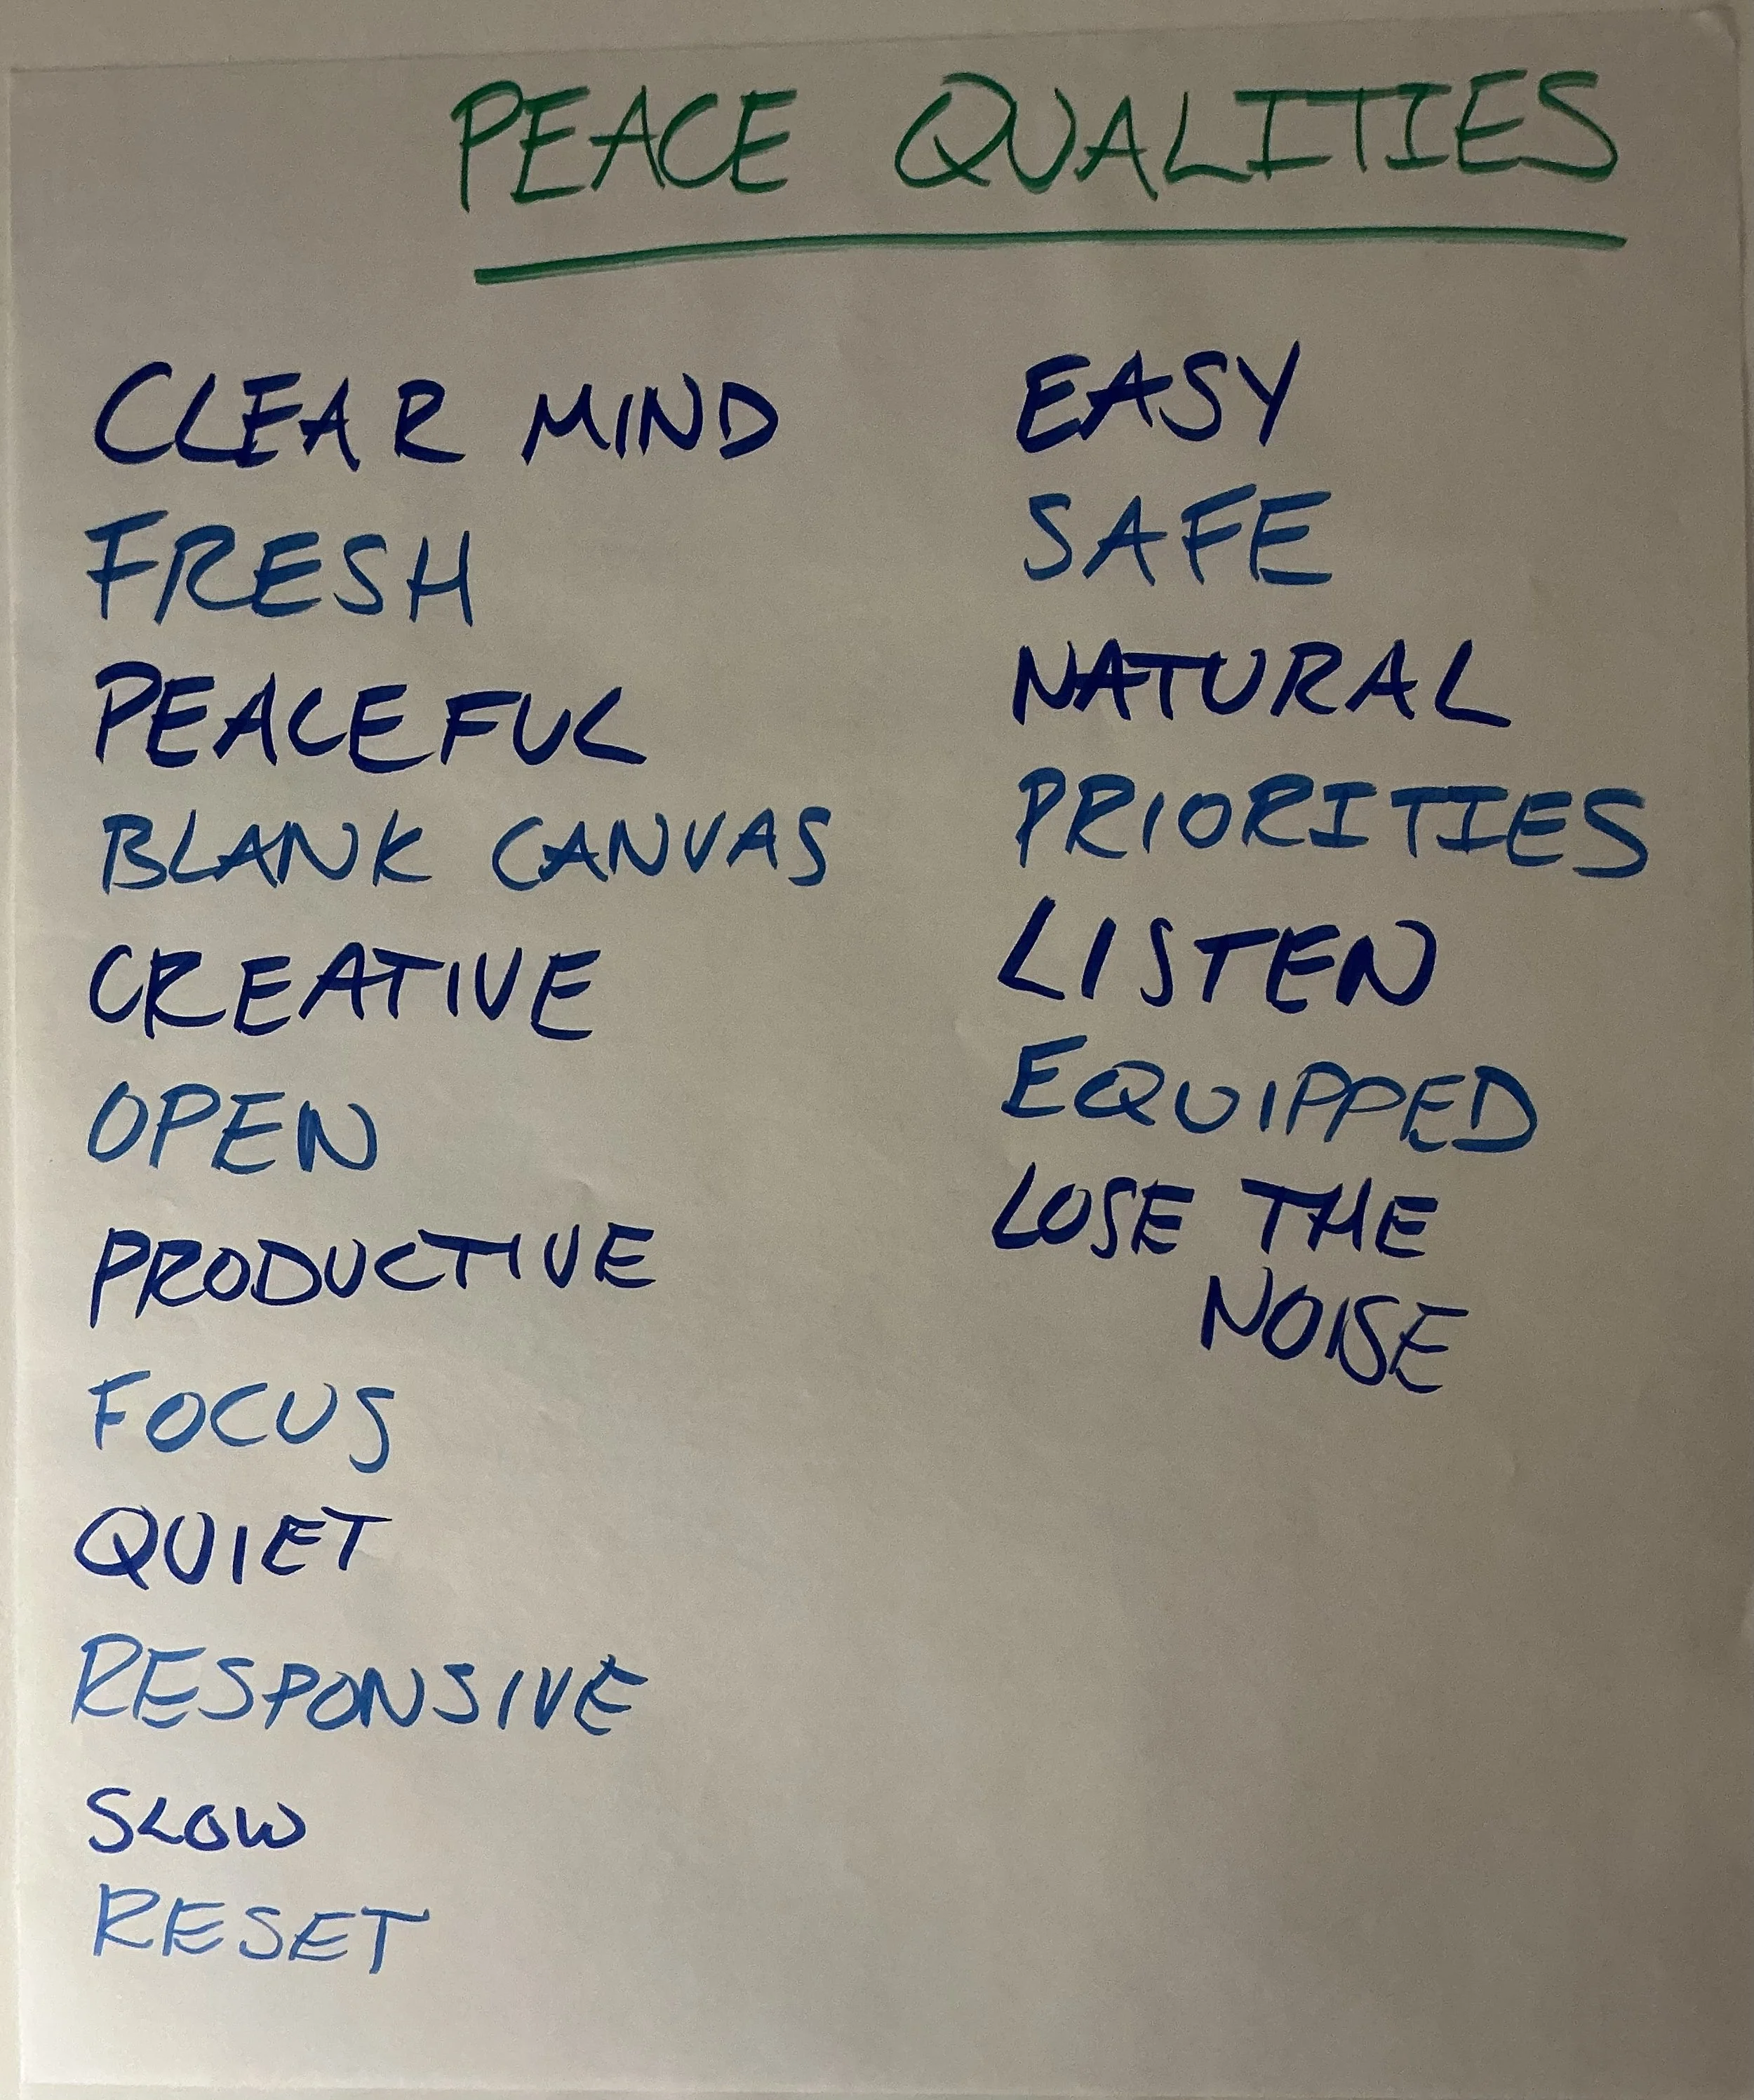 PEACE QUALITIES
CLEAR MIND
FRESH
PEACEFUL
BLANK CANVAS
CREATIVE
OPEN
PRODUCTIVE
FOCUS
QUIET
RESPONSIVE
SLOW
RESET
EASY
SAFE
NATURAL
PRIORITIES
LISTEN
EQUIPPED
LOSE THE
NOISE